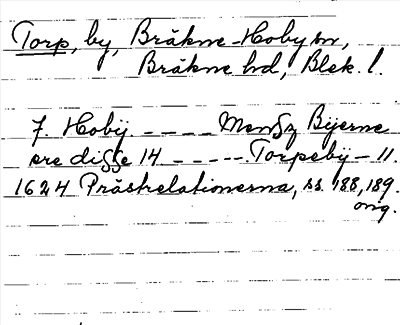 Torp, by, Bräkne-Hoby sn,
Bräkne hd, Blek. l.
J. Hobÿ ---- Menſz Bÿerne
ere diſſe 14 ----- Torpebÿ - 11.
1624 Prästrelationerna, ss. 188, 189.
orig.